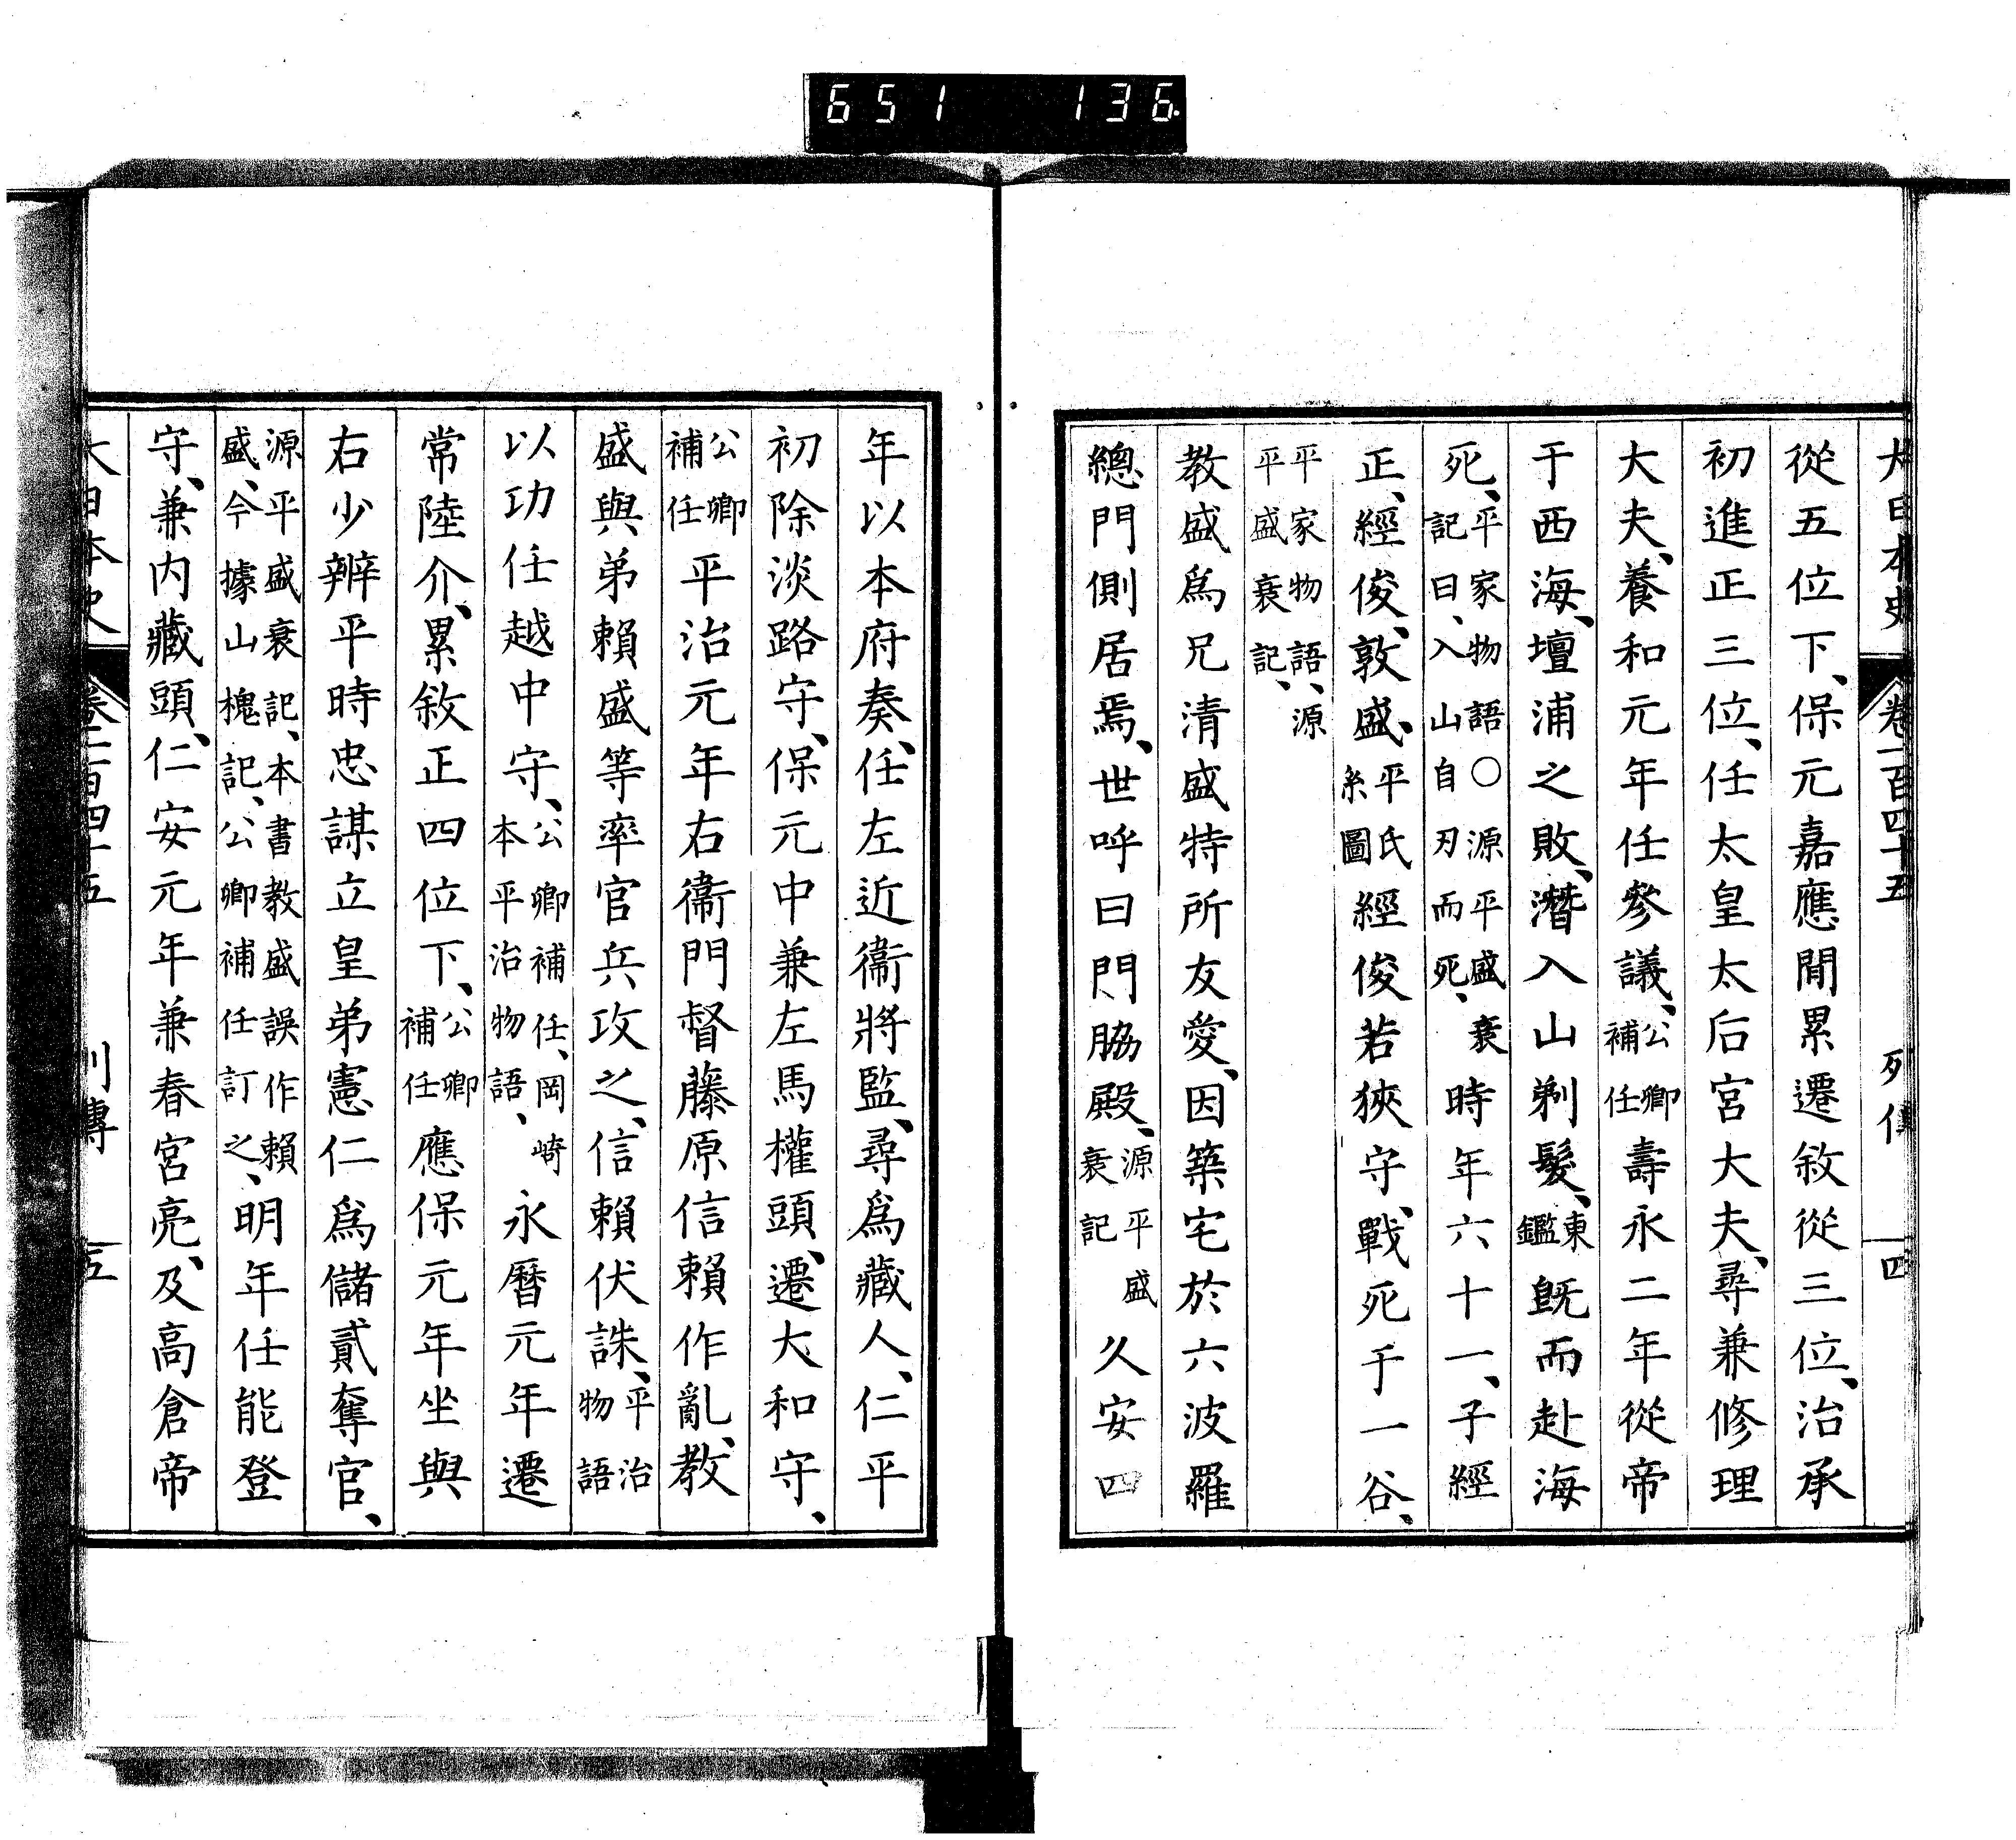 651 136
大日本史 卷一百四十五 列傳 四
從五位下、保元嘉應間累遷敘從三位、治承
初進正三位、任太皇太后宮大夫、尋兼修理
大夫、養和元年任參議、公卿補任壽永二年從帝
于西海、壇浦之敗、潛入山剃髮、東鑑旣而赴海
死、平家物語○源平盛衰記曰、入山自刃而死、時年六十一、子經
正、經俊、敦盛、平氏系圖經俊若狹守、戰死于一谷、
平家物語、源平盛衰記、
教盛爲兄淸盛特所友愛、因築宅於六波羅
總門側居焉、世呼曰門脇殿、源平盛衰記久安四
年以本府奏、任左近衞將監、尋爲藏人、仁平
初除淡路守、保元中兼左馬權頭、遷大和守、
公卿補任平治元年右衞門督藤原信賴作亂、教
盛與弟賴盛等率官兵攻之、信賴伏誅、平治物語
以功任越中守、公卿補任、岡崎本平治物語、永曆元年遷
常陸介、累敘正四位下、公卿補任應保元年坐與
右少辨平時忠謀立皇弟憲仁爲儲貳奪官、
源平盛衰記、本書教盛誤作賴盛、今據山槐記、公卿補任訂之、明年任能登
守、兼內藏頭、仁安元年兼春宮亮、及高倉帝
大日本史 卷一百四十五 列傳 五